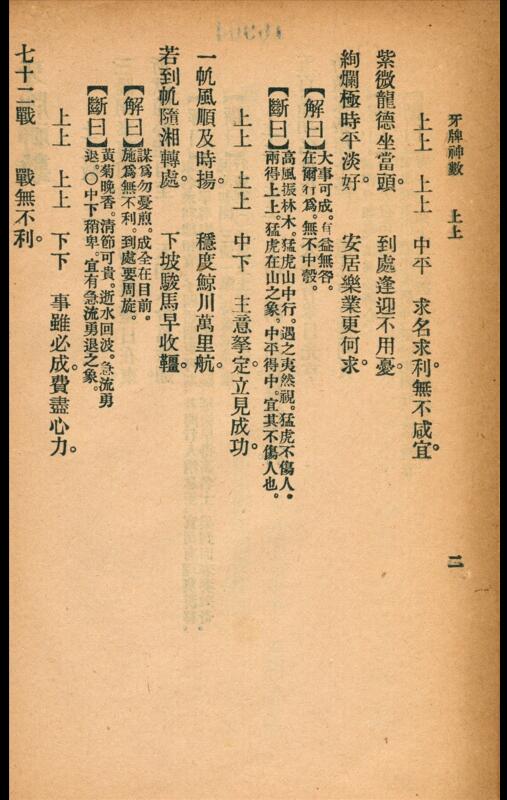 牙牌神數　上上　二
上上　上上　中平　求名求利無不咸宜。
紫微龍德坐當頭。　到處逢迎不用憂。
絢爛極時平淡好。　安居樂業更何求
【解曰】大事可成。有益無咎。
在爾行爲。無不中彀。
【斷曰】高風振林木。猛虎山中行。遇之夷然視。猛虎不傷人。
兩得上上。猛虎在山之象。中平得中。宜其不傷人也。
上上　上上　中下　主意拏定立見成功。
一帆風順及時揚。　穩度鯨川萬里航。
若到帆隨湘轉處。　下坡駿馬早收韁。
【解曰】謀爲勿憂煎。成全在目前。
施爲無不利。到處要周旋。
【斷曰】黃菊晚香。清節可貴。逝水回波。急流勇
退。〇中下稍卑。宜有急流勇退之象。
上上　上上　下下　事雖必成。費盡心力。
七十二戰　戰無不利。